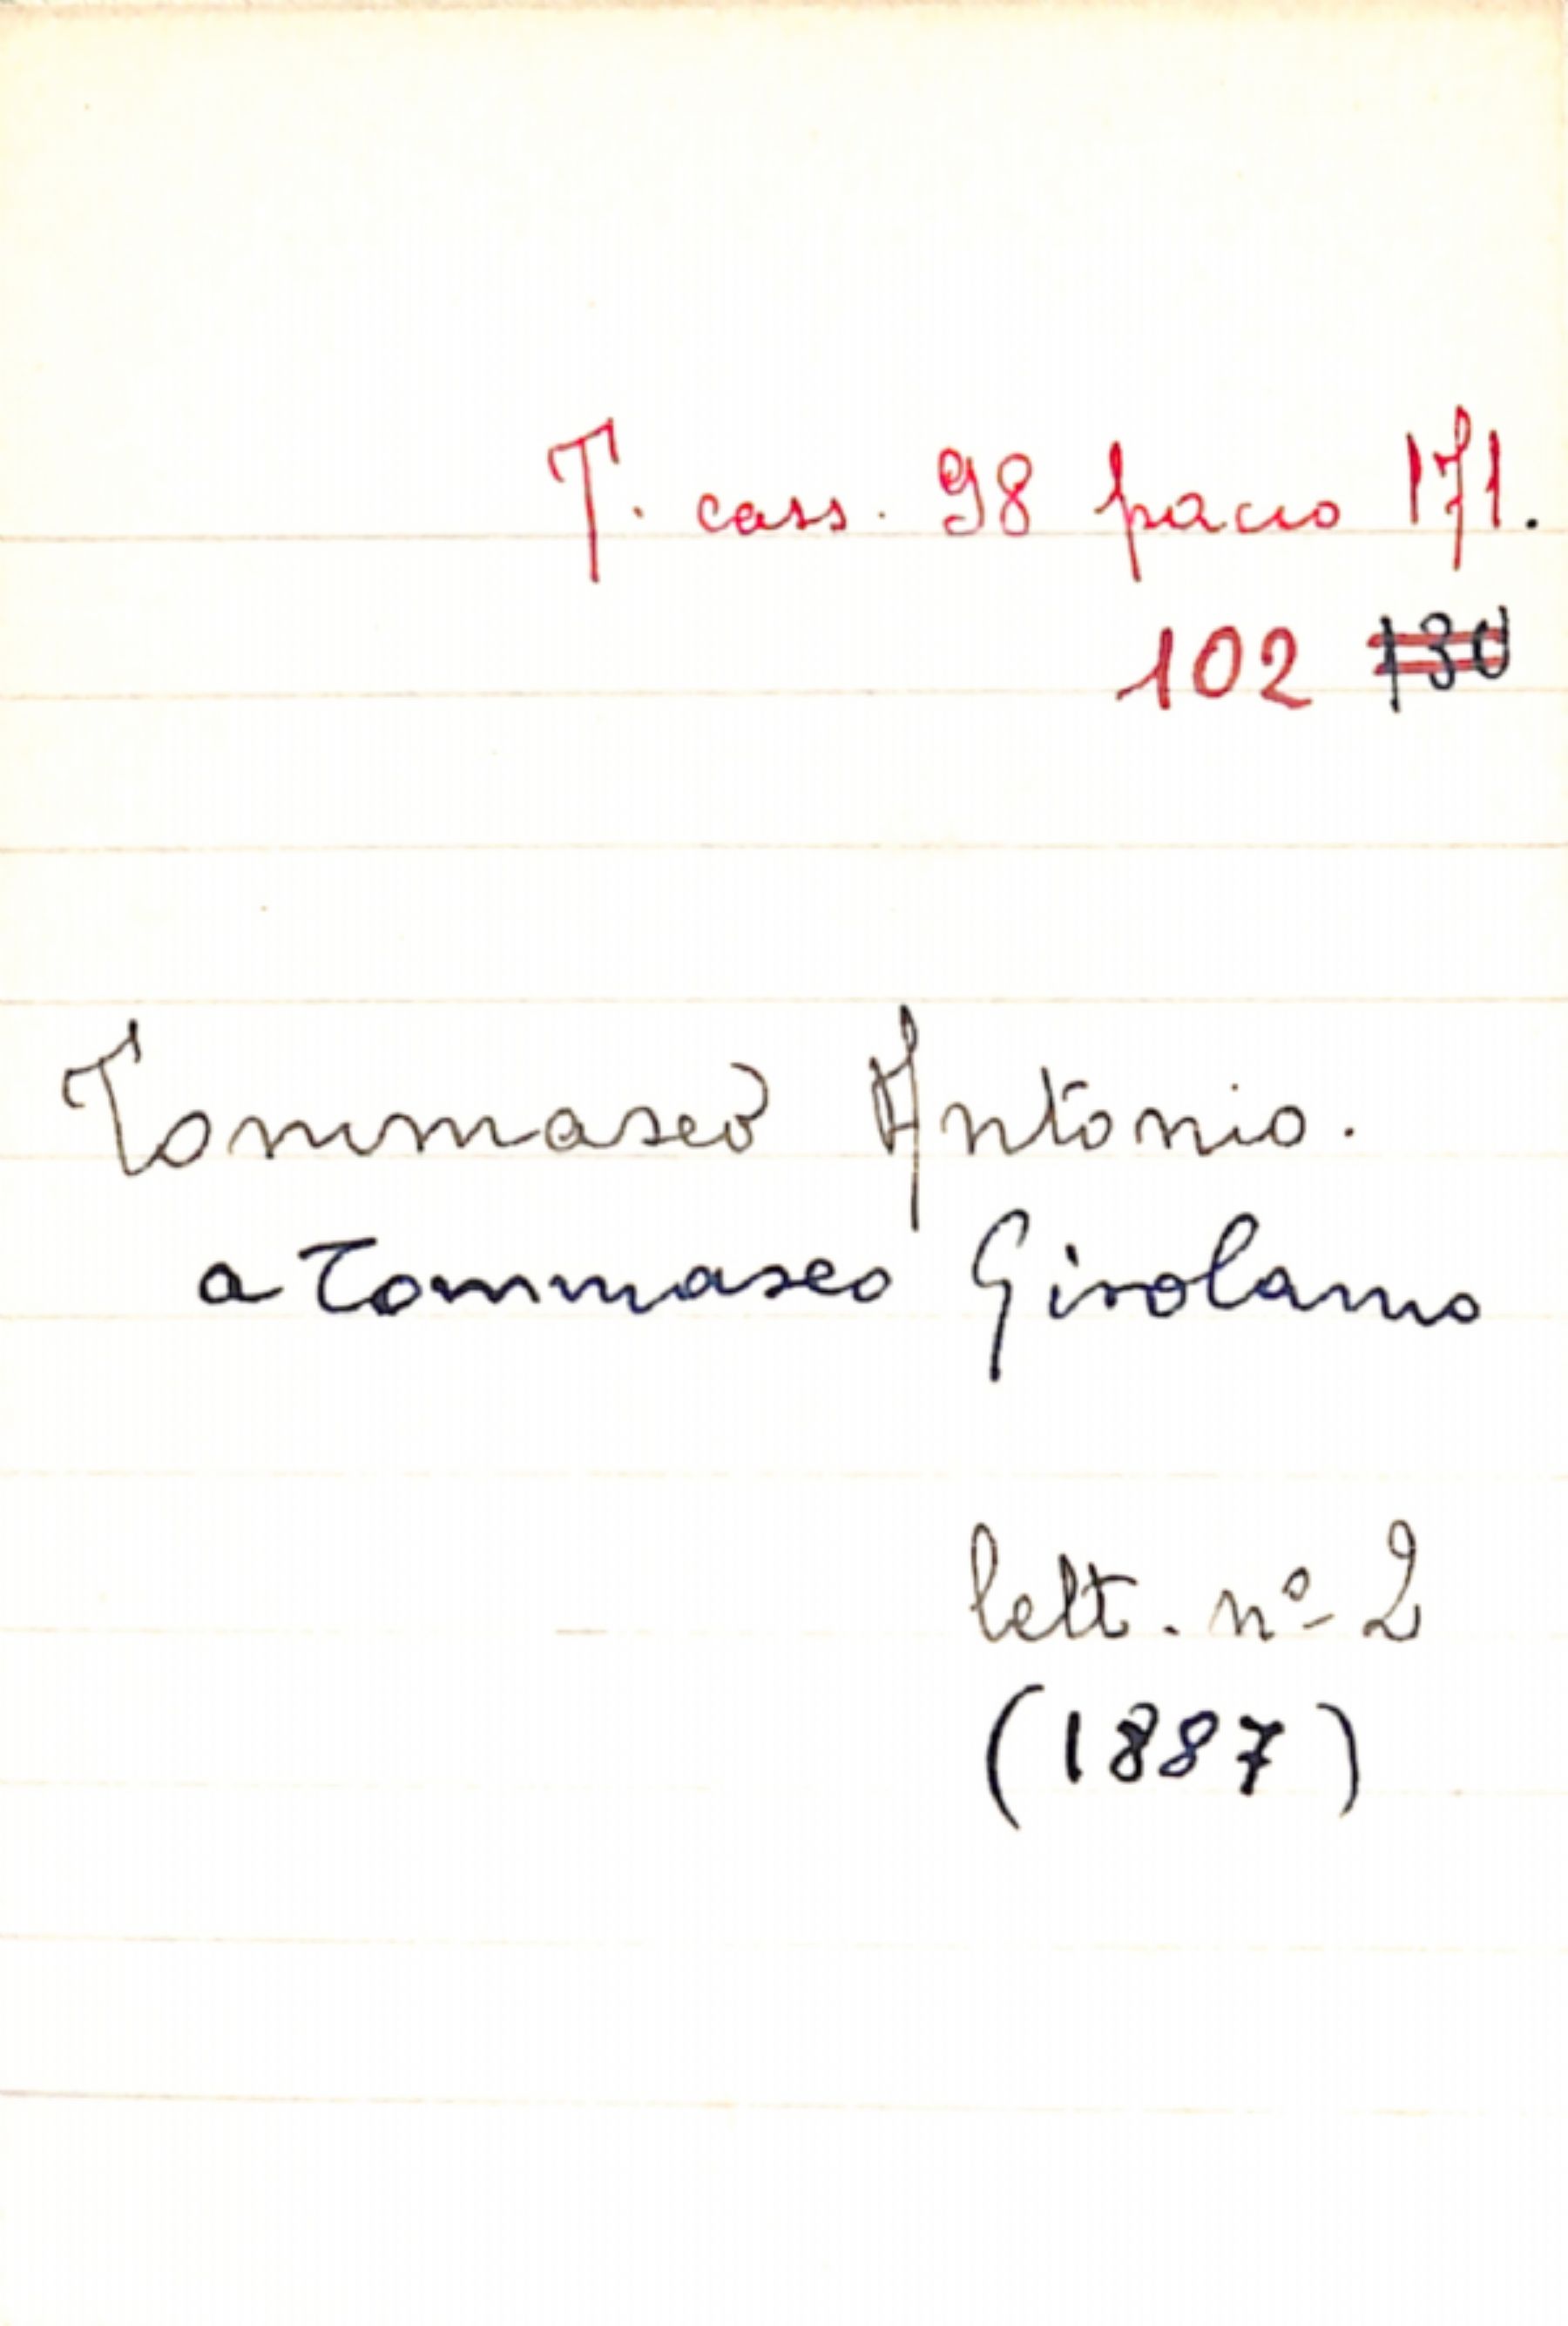 T. cass. 98 pacco 171.
102 130
Tommaseo Antonio.
a Tommaseo Girolamo
lett. nº 2
(1887)